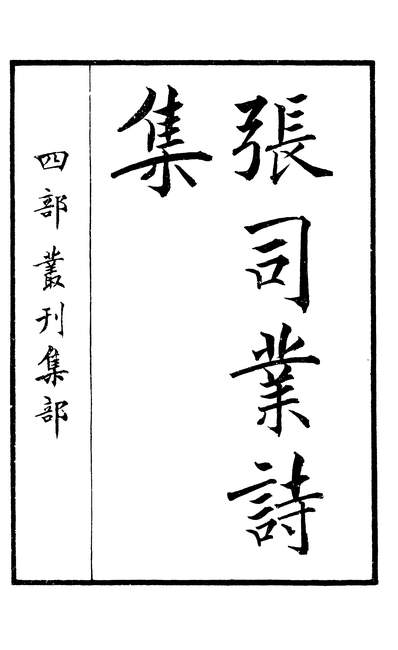 張司業詩
集
四部叢刊集部